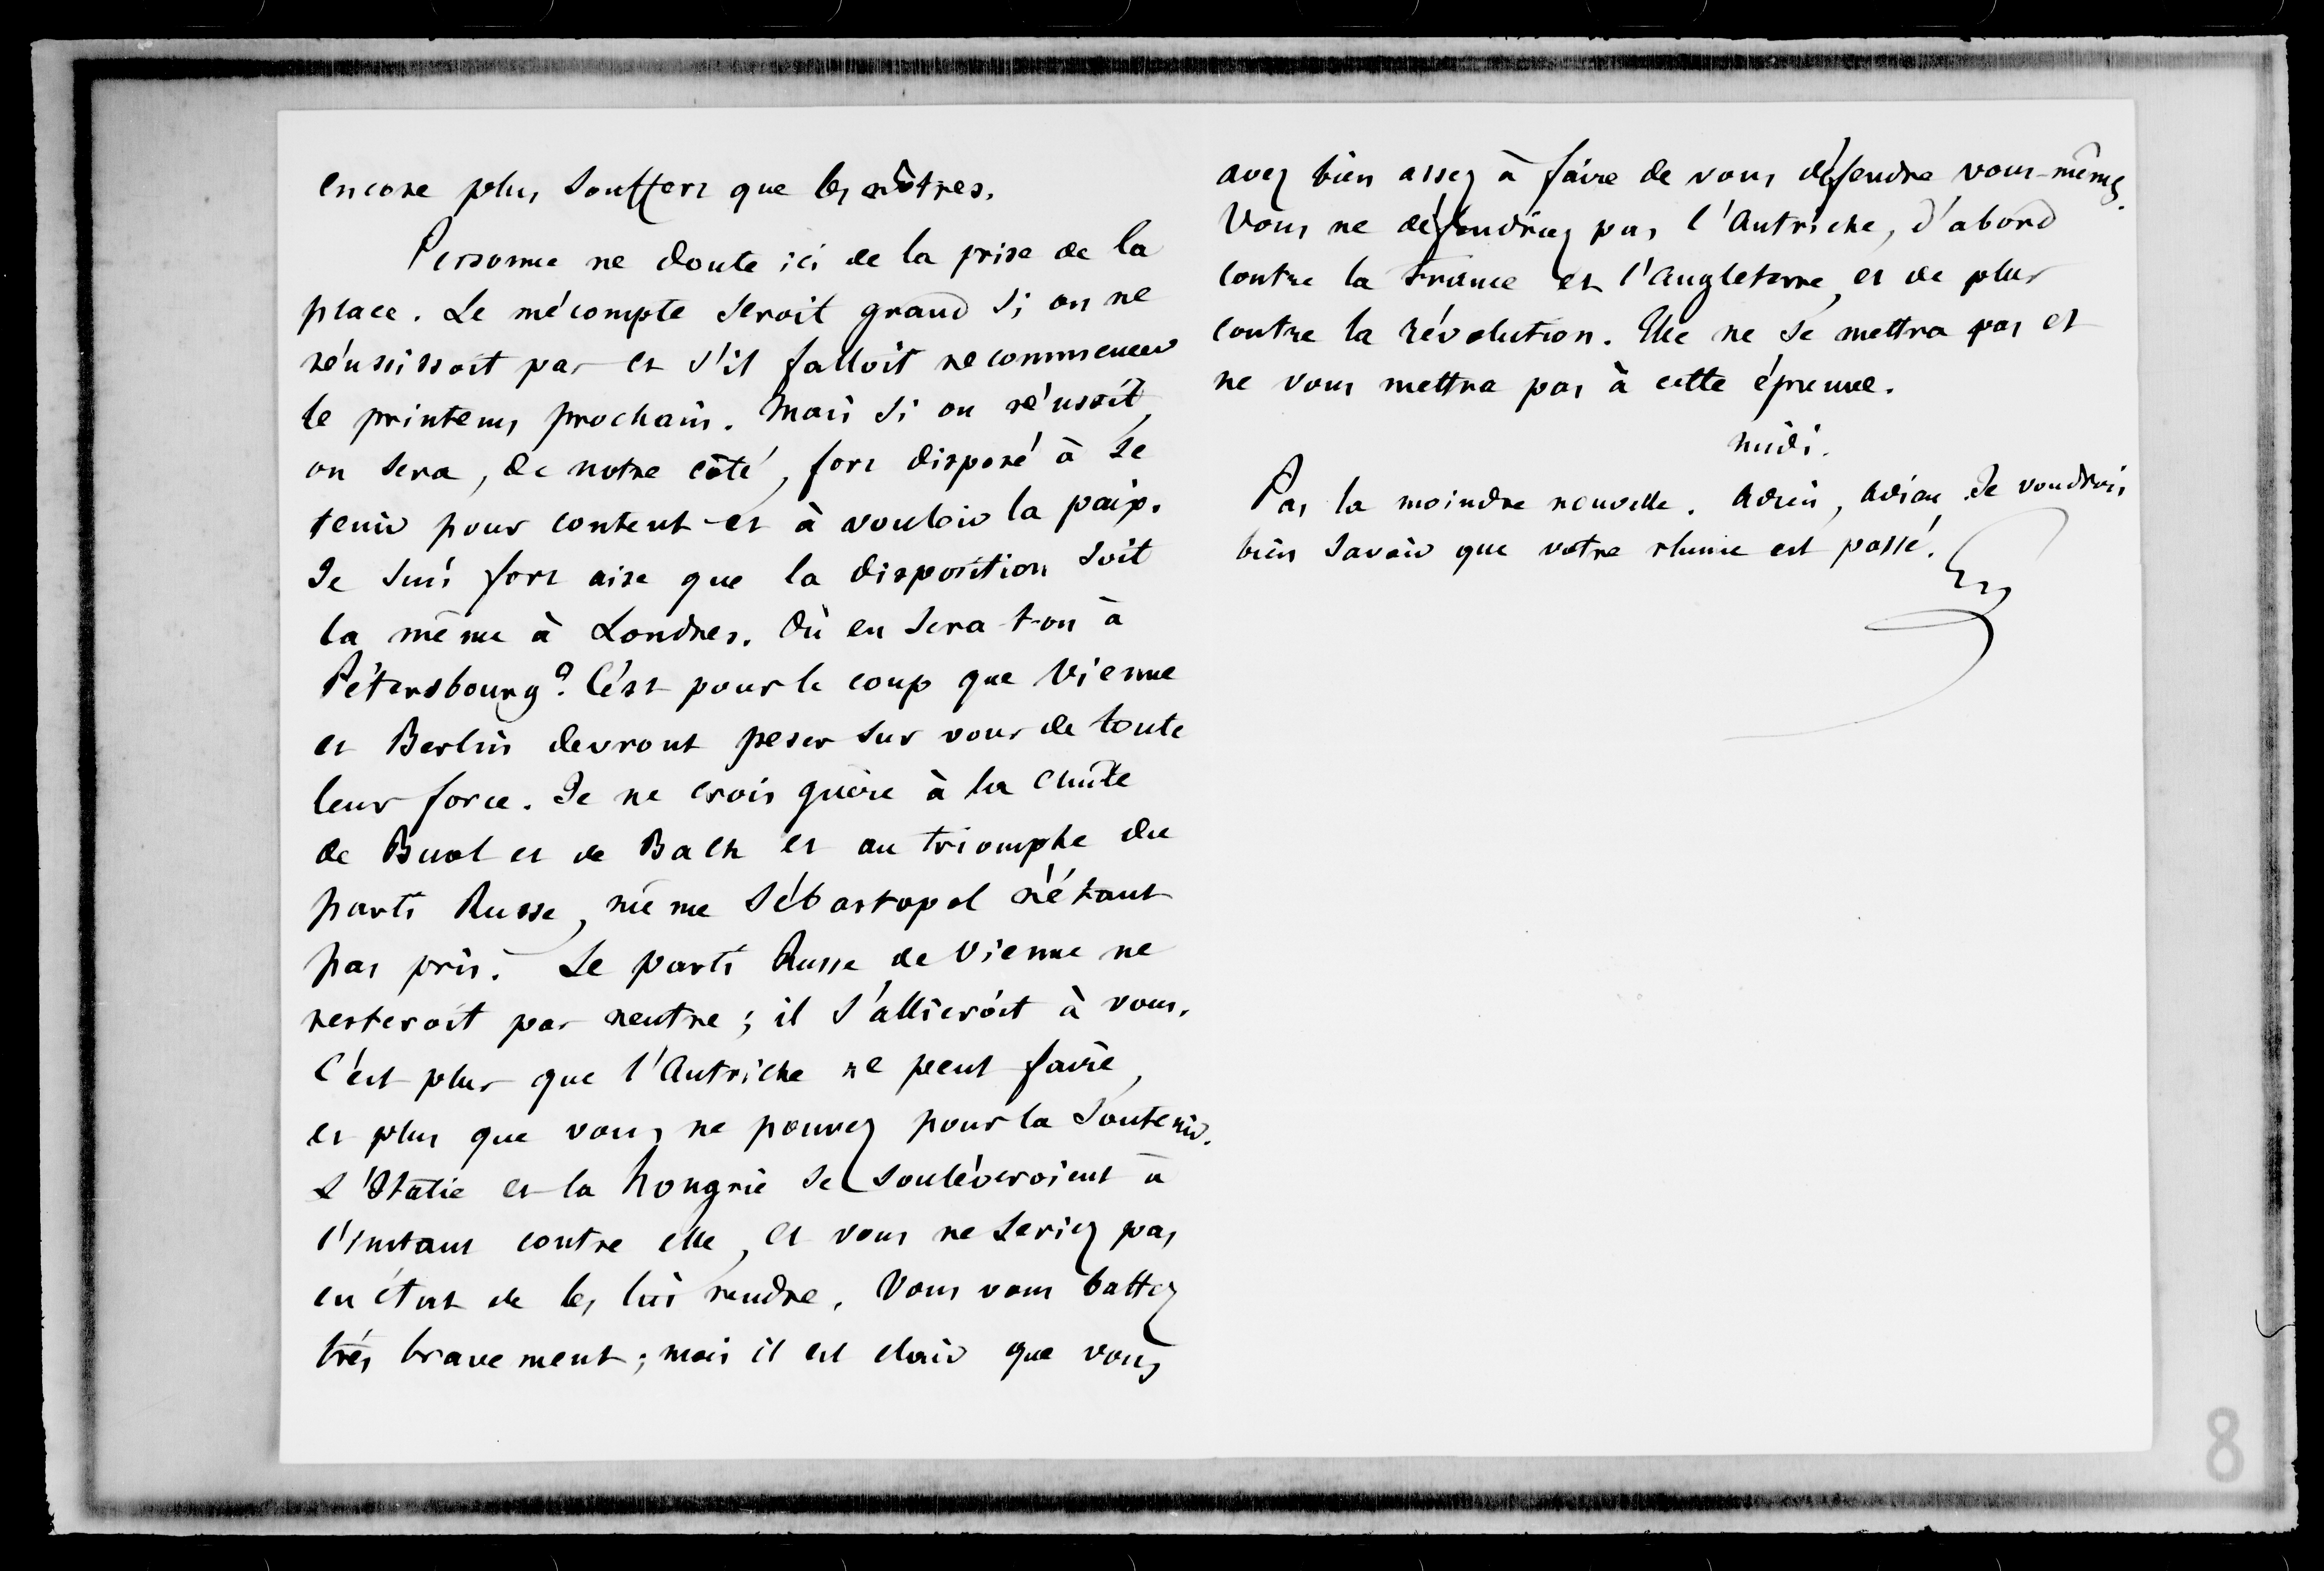 encore plus souffert que les nôtres.
Personne ne doute ici de la prise de la
place. Le mécompte seroit grand si on ne
réussissoit pas et s'il falloit recommencer
le printems prochain. Mais si on réussit,
on sera, de notre côté, fort disposé à se
tenir pour content et à vouloir la paix.
Je suis fort aise que la disposition soit
la même à Londres. Où en sera-t-on à
Pétersbourg? C'est pour le coup que Vienne
et Berlin devront peser sur vous de toute
leur force. Je ne crois guère à la chûte
de Buol et de Bach et au triomphe du
parti Russe, même Sébastopol n'étant
pas pris. Le parti Russe de Vienne ne
resteroit pas neutre; il s'allieroit à vous.
C'est plus que l'Autriche ne peut faire,
et plus que vous ne pouvez pour la soutenir.
L'Italie et la Hongrie se souléveroient à
l'instant contre elle, et vous ne seriez pas
en état de les lui rendre. Vous vous battez
très bravement; mais il est clair que vous
avez bien assez à faire de vous défendre vous-mêmes.
Vous ne défendriez pas l'Autriche, d'abord
contre la France et l'Angleterre, et de plus
contre la révolution. Elle ne se mettra pas et
ne vous mettra pas à cette épreuve.
midi.
Pas la moindre nouvelle. Adieu, Adieu. Je voudrois
bien savoir que votre rhume est passé.
8